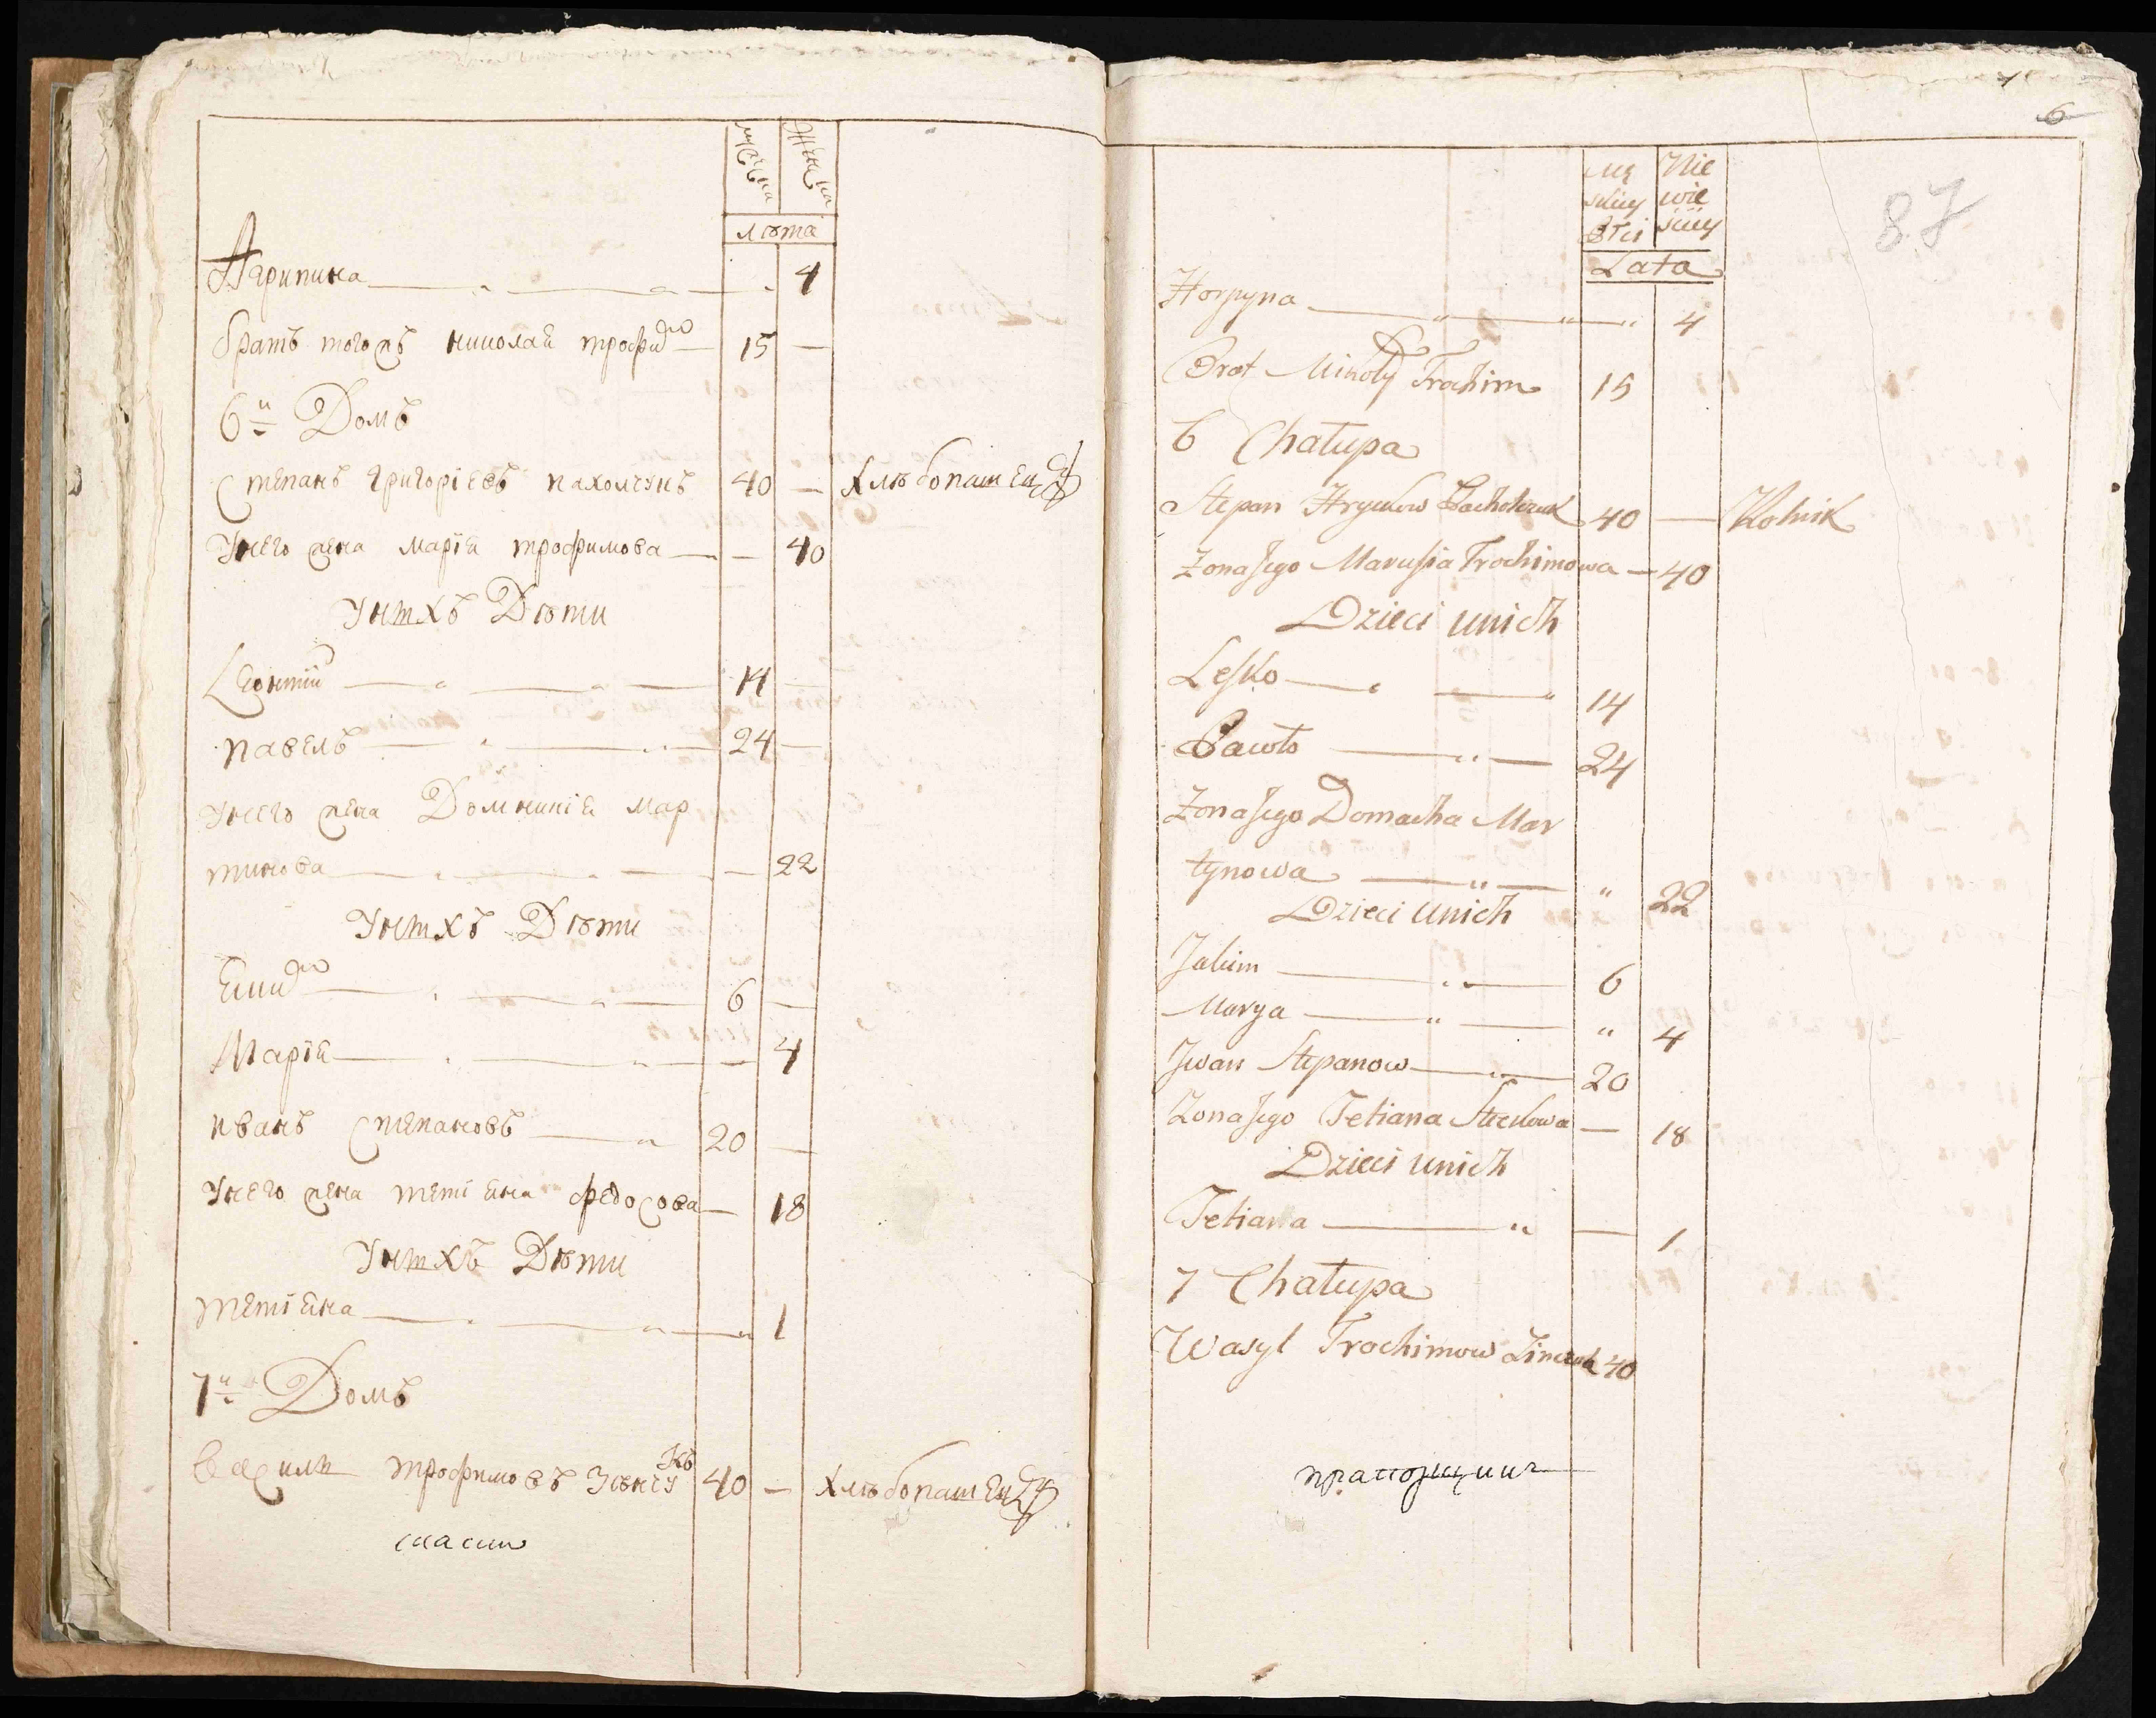 мужеска
женска
лѣта
Агрипина 4
братъ тогожъ николай трофим 15 —
6й Домъ
Степанъ григоріевъ пахолчукъ 40 — хлѣбопашецъ
Унего жена марія трофимова — 40
Унихъ Дѣти
Леонтій 14 —
павелъ 24 —
Унего жена Домникія мар
тинова — 22
Унихъ Дѣти
Еким 6 —
Марія — 4
иванъ Степановъ 20 —
Унего жена тетіяна федосова — 18
Унихъ Дѣти
тетіяна 1
7й Домъ
василий трофимовъ Зѣнчукъ 40 — хлѣбопашецъ
6
87
Mę
Nie
wie
Lata
Horpyna 4
Brat Mikoły Trochim 15
6 Chałupa
Stepan Hryckow Pacholczuk 40 — Rolnik
Zona Jego Marusia Trochimowa — 40
Dzieci unich
Lesko 14
Pawło 24
Zona Jego Domacha Mar
tynowa " 22
Dzieci Unich
Jakim 6
Marya " 4
Jwan Stepanow 20
Zona Jego Tetiana — 18
Dzieci unich
Tetiana — 1
7 Chałupa
Wasyl Trochimow Zinczuk 40
прапорщикъ